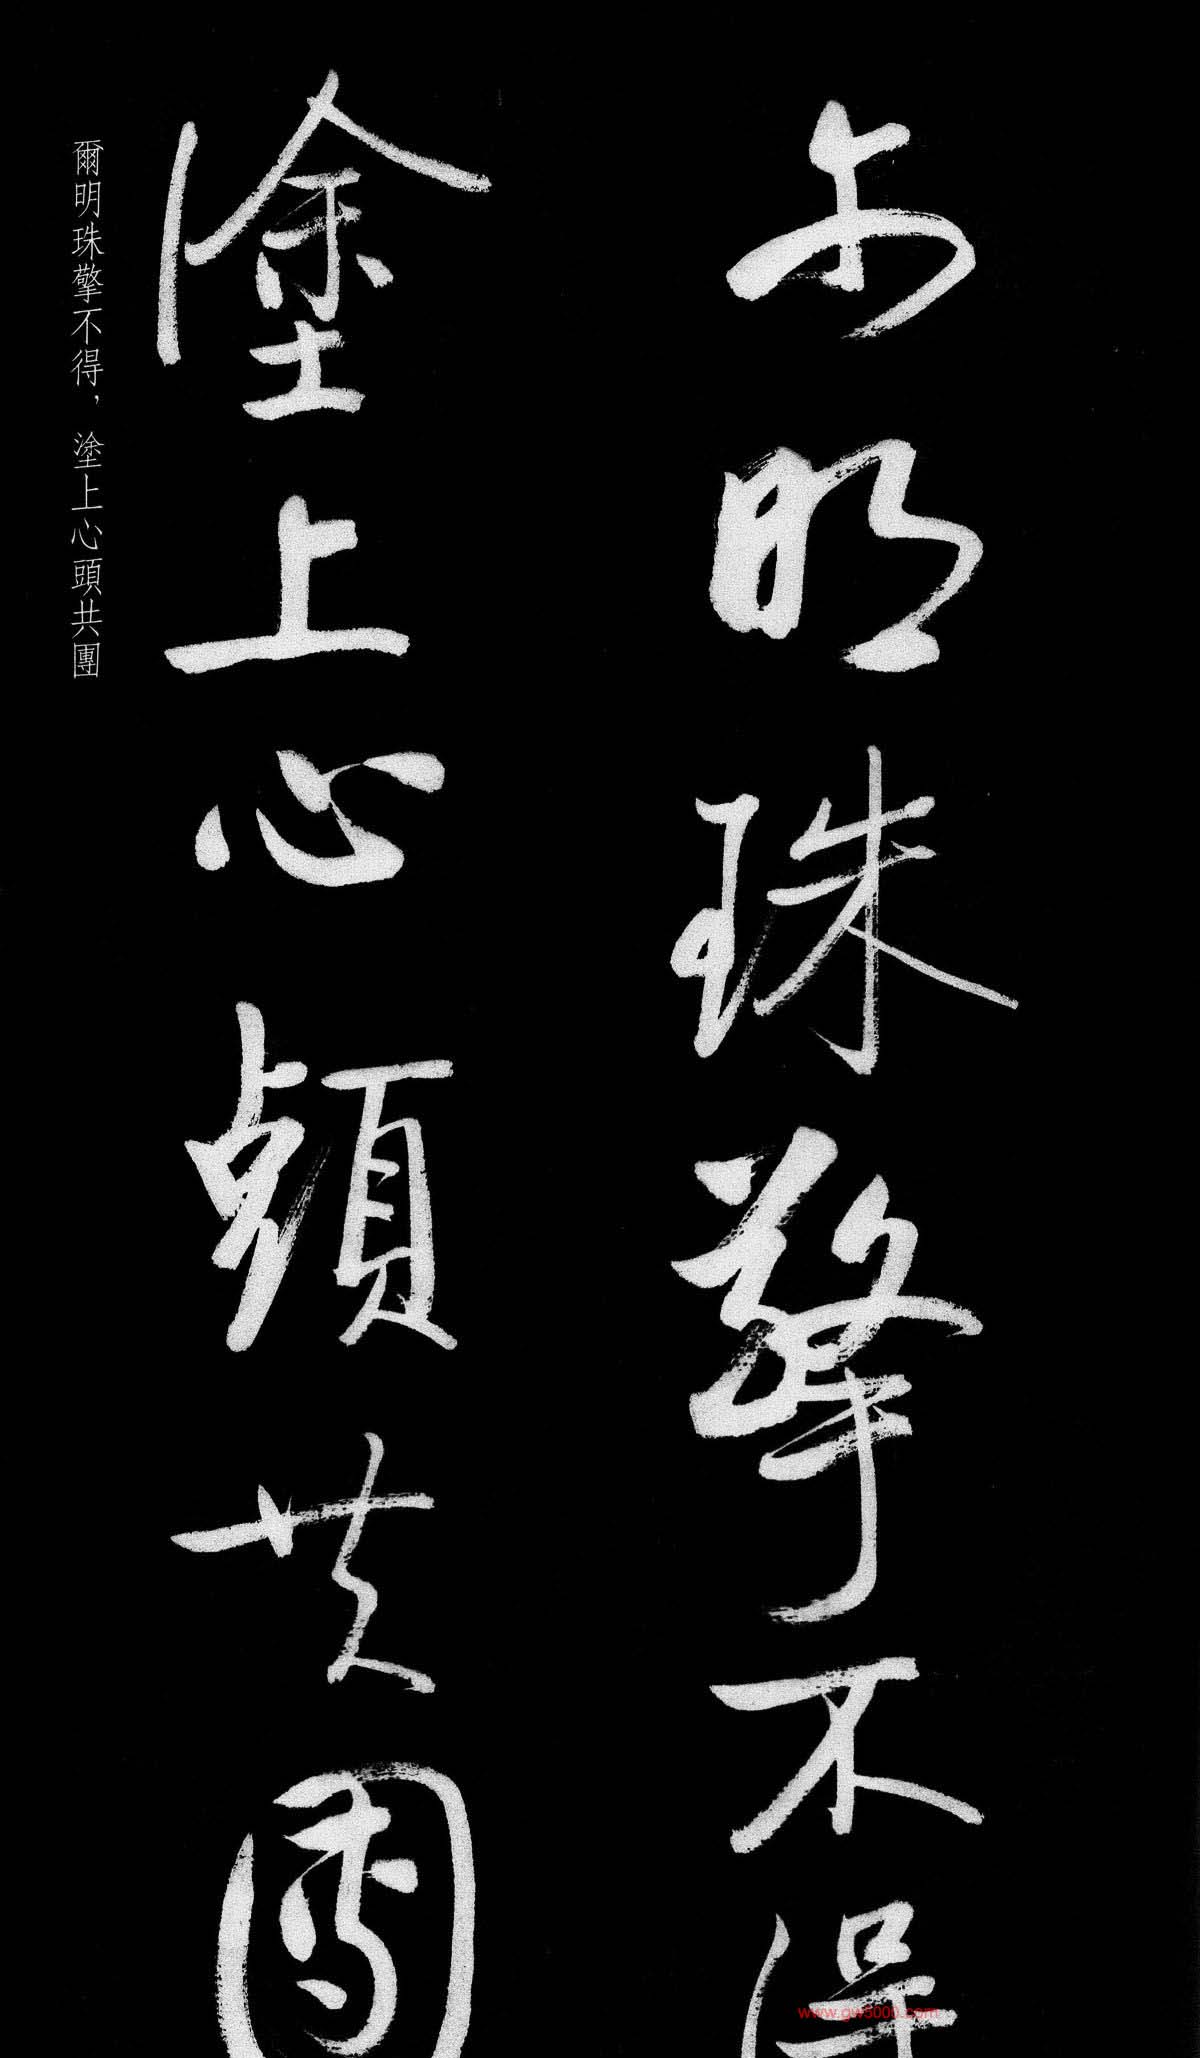 尔明珠擎不得
塗上心頭共團
爾明珠擎不得，塗上心頭共團
www.gw5000.com